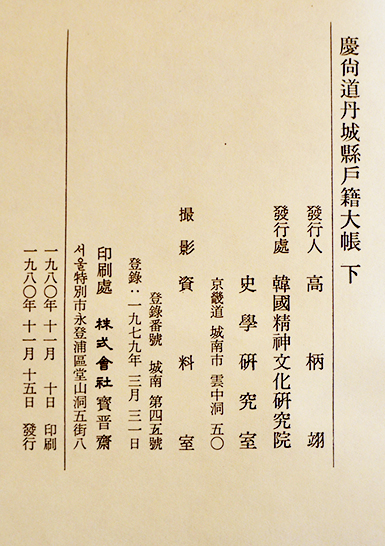 慶尙道丹城縣戶籍大帳 下
發行人 高柄翊
發行處 韓國精神文化硏究院
史學硏究室
京畿道 城南市 雲中洞 五〇
撮影 資料室
登錄番號 城南 第四五號
登錄：一九七九、三月 三一日
印刷處 株式會社 寶晉齋
서울特別市永登浦區堂山洞五街八
一九八〇年 十一月 十日 印刷
一九八〇年 十一月 十五日 發行